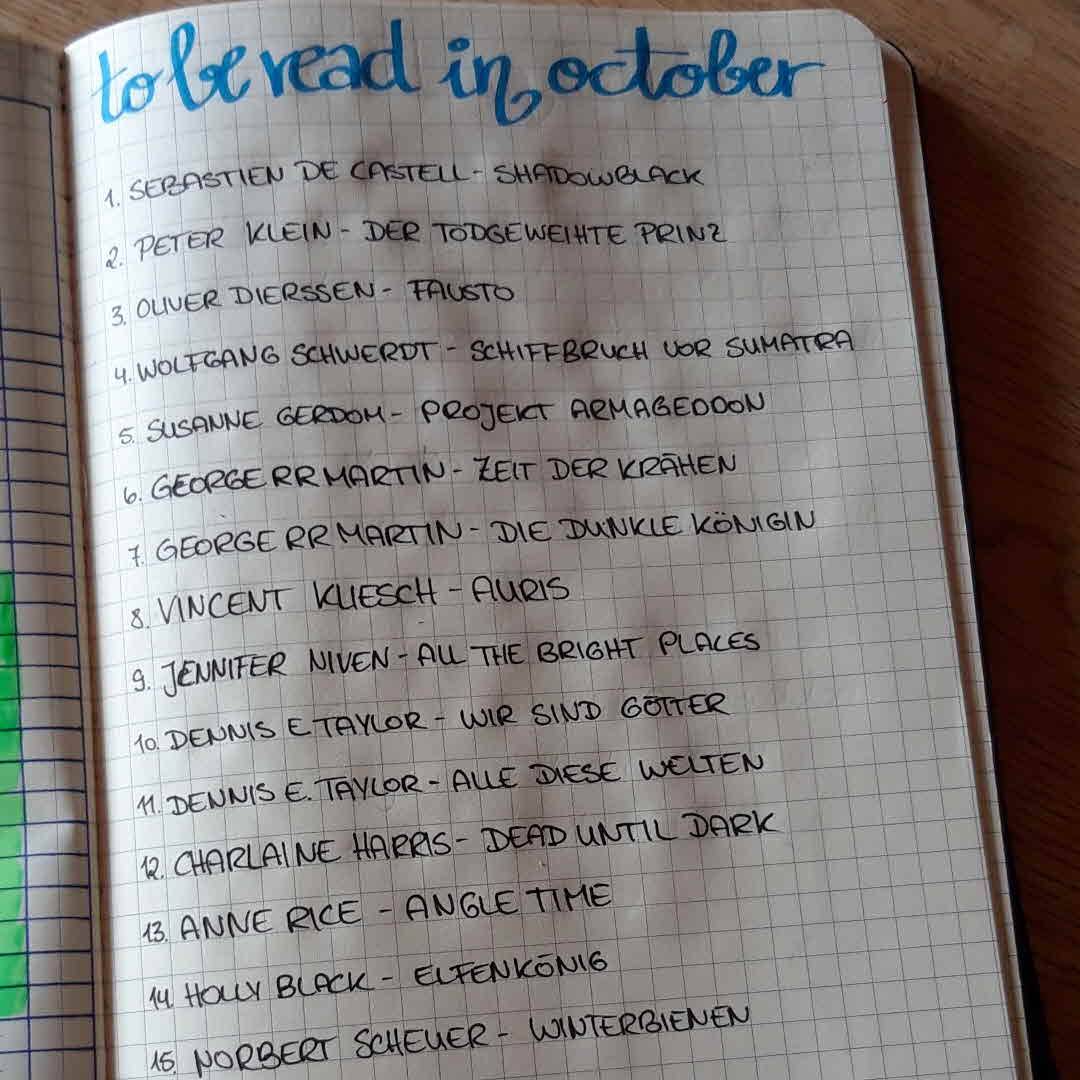 to be read in october
1. SEBASTIEN DE CASTELL - SHADOWBLACK
2. PETER KLEIN - DER TODGEWEIHTE PRINZ
3. OLIVER DIERSSEN - FAUSTO
4. WOLFGANG SCHWERDT - SCHIFFBRUCH VOR SUMATRA
5. SUSANNE GERDOM - PROJEKT ARMAGEDDON
6. GEORGE RR MARTIN - ZEIT DER KRÄHEN
7. GEORGE RR MARTIN - DIE DUNKLE KÖNIGIN
8. VINCENT KLIESCH - AURIS
9. JENNIFER NIVEN - ALL THE BRIGHT PLACES
10. DENNIS E TAYLOR - WIR SIND GÖTTER
11. DENNIS E. TAYLOR - ALLE DIESE WELTEN
12. CHARLAINE HARRIS - DEAD UNTIL DARK
13. ANNE RICE - ANGLE TIME
14. HOLLY BLACK - ELFENKÖNIG
15. NORBERT SCHEUER - WINTERBIENEN